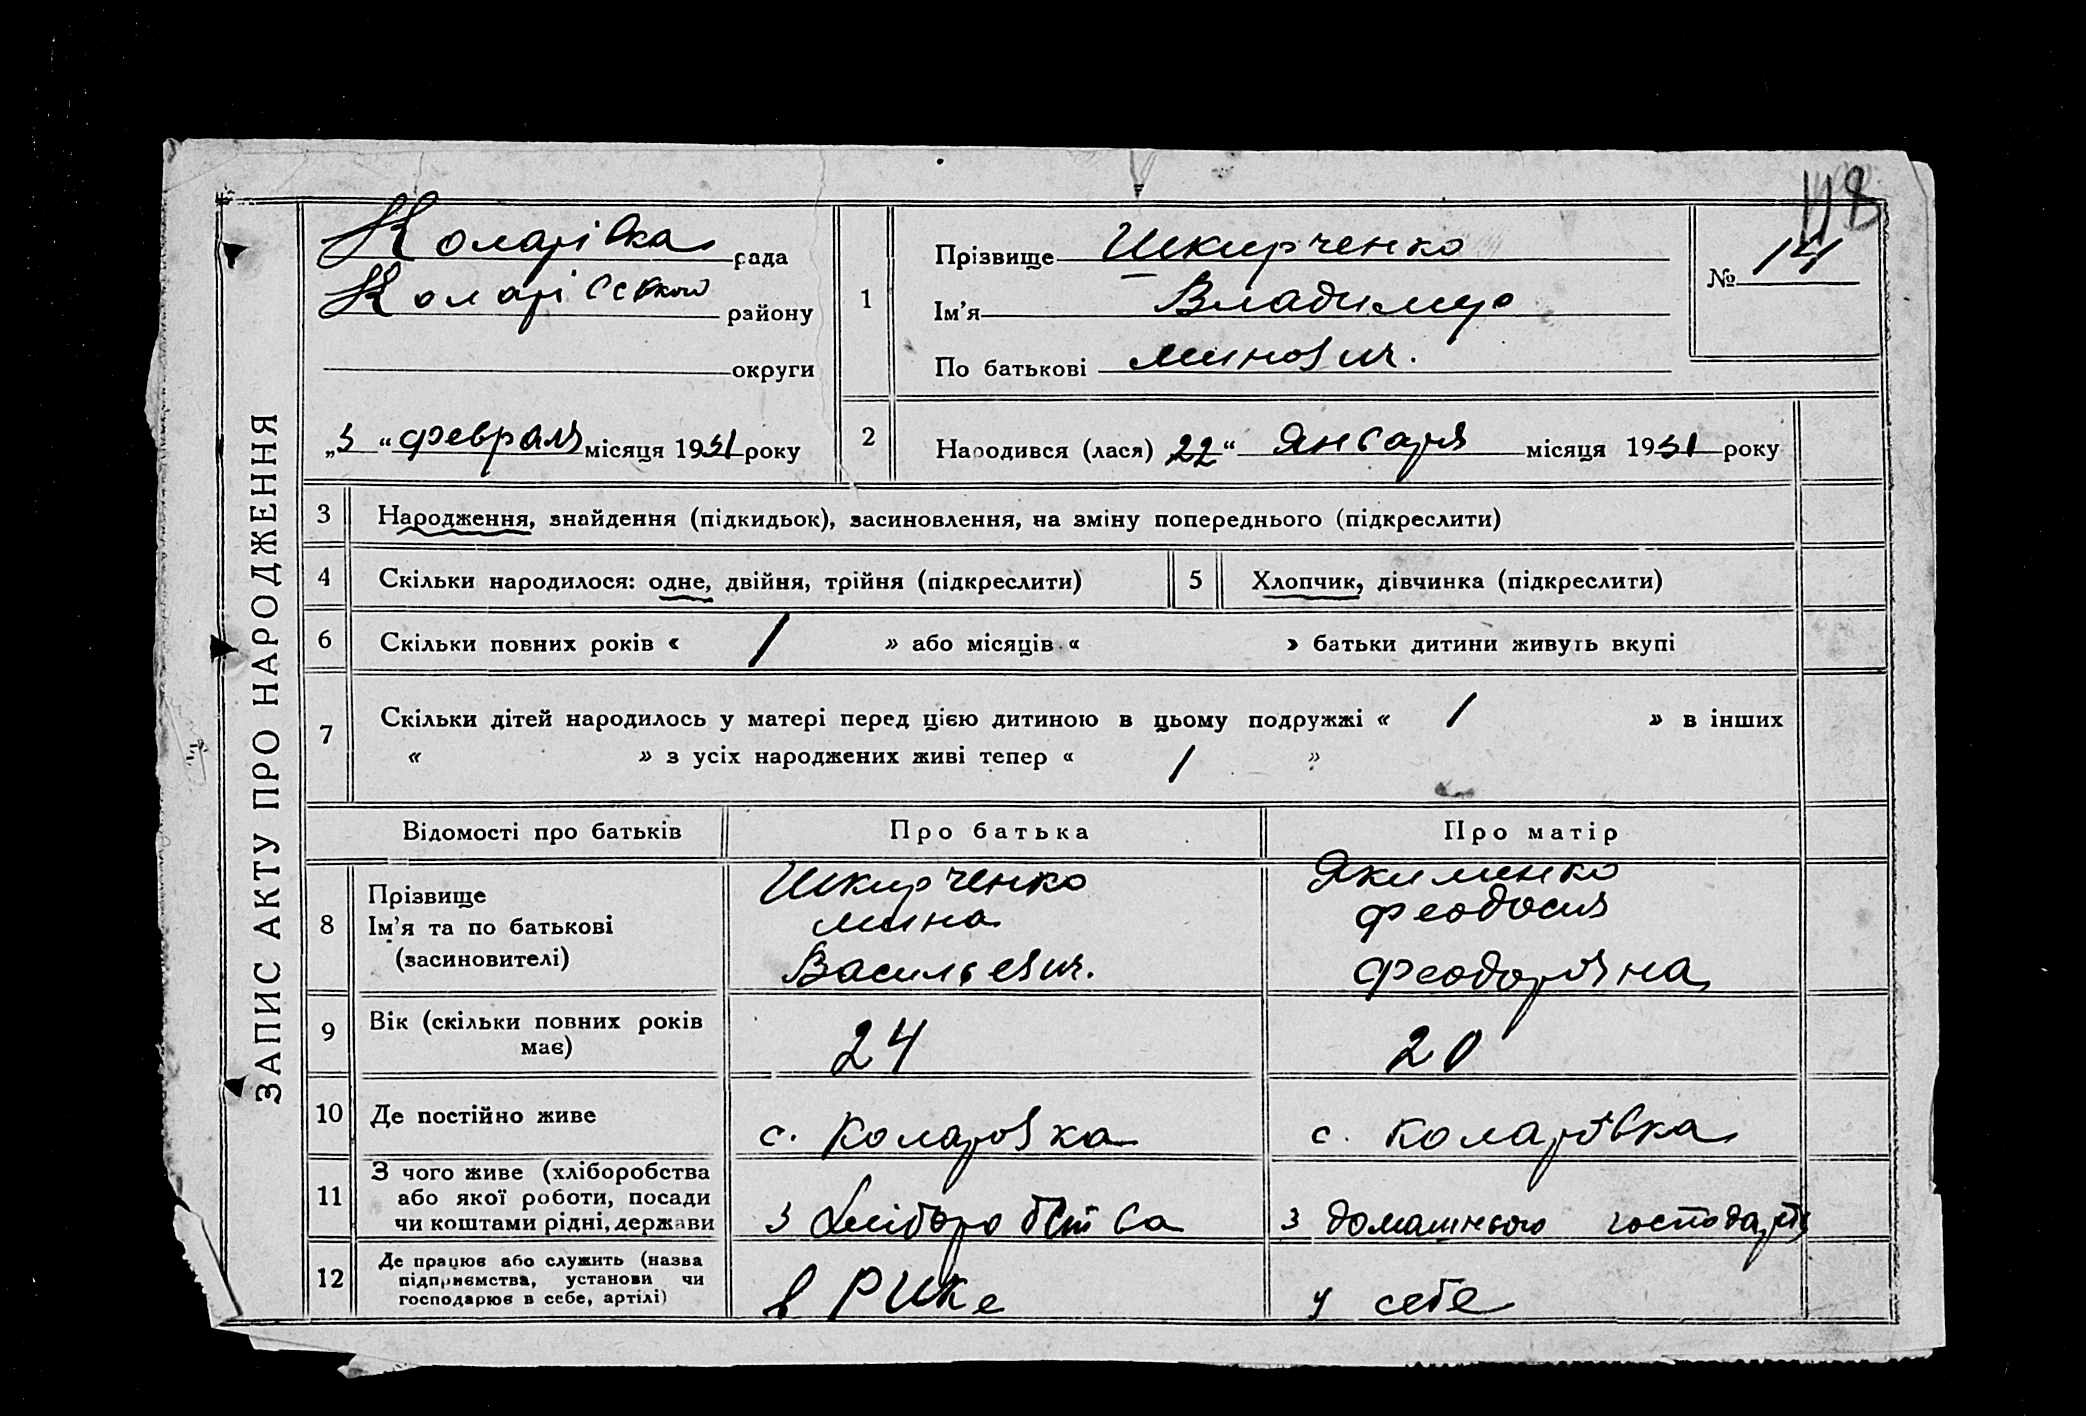 118
ЗАПИС АКТУ ПРО НАРОДЖЕННЯ
Коларівка рада
Коларівської району
округи
„3“ февраля місяця 1931 року
1
Прізвище Шкирченко
Ім'я Владимир
По батькові Минович.
№ 14
2
Народився (лася) 22“ Января місяця 1931 року
3 Народження, знайдення (підкидьок), засиновлення, на зміну попереднього (підкреслити)
4 Скільки народилося: одне, двійня, трійня (підкреслити) 5 Хлопчик, дівчинка (підкреслити)
6 Скільки повних років « 1 » або місяців « » батьки дитини живуть вкупі
7 Скільки дітей народилось у матері перед цією дитиною в цьому подружжі « 1 » в інших
« » з усіх народжених живі тепер « 1 »
Відомості про батьків Про батька Про матір
8
Прізвище
Ім'я та по батькові
(засиновителі)
Шкирченко
Мина
Васильевич.
Якименко
Феодосия
Феодорівна
9 Вік (скільки повних років
має)
24 20
10 Де постійно живе с. Коларовка с. Коларівка
11
З чого живе (хліборобства
або якої роботи, посади
чи коштами рідні, держави
з хліборобства з домашнього господарст
12
Де працює або служить (назва
підприємства, установи чи
господарює в себе, артілі)
в РИКе у себе